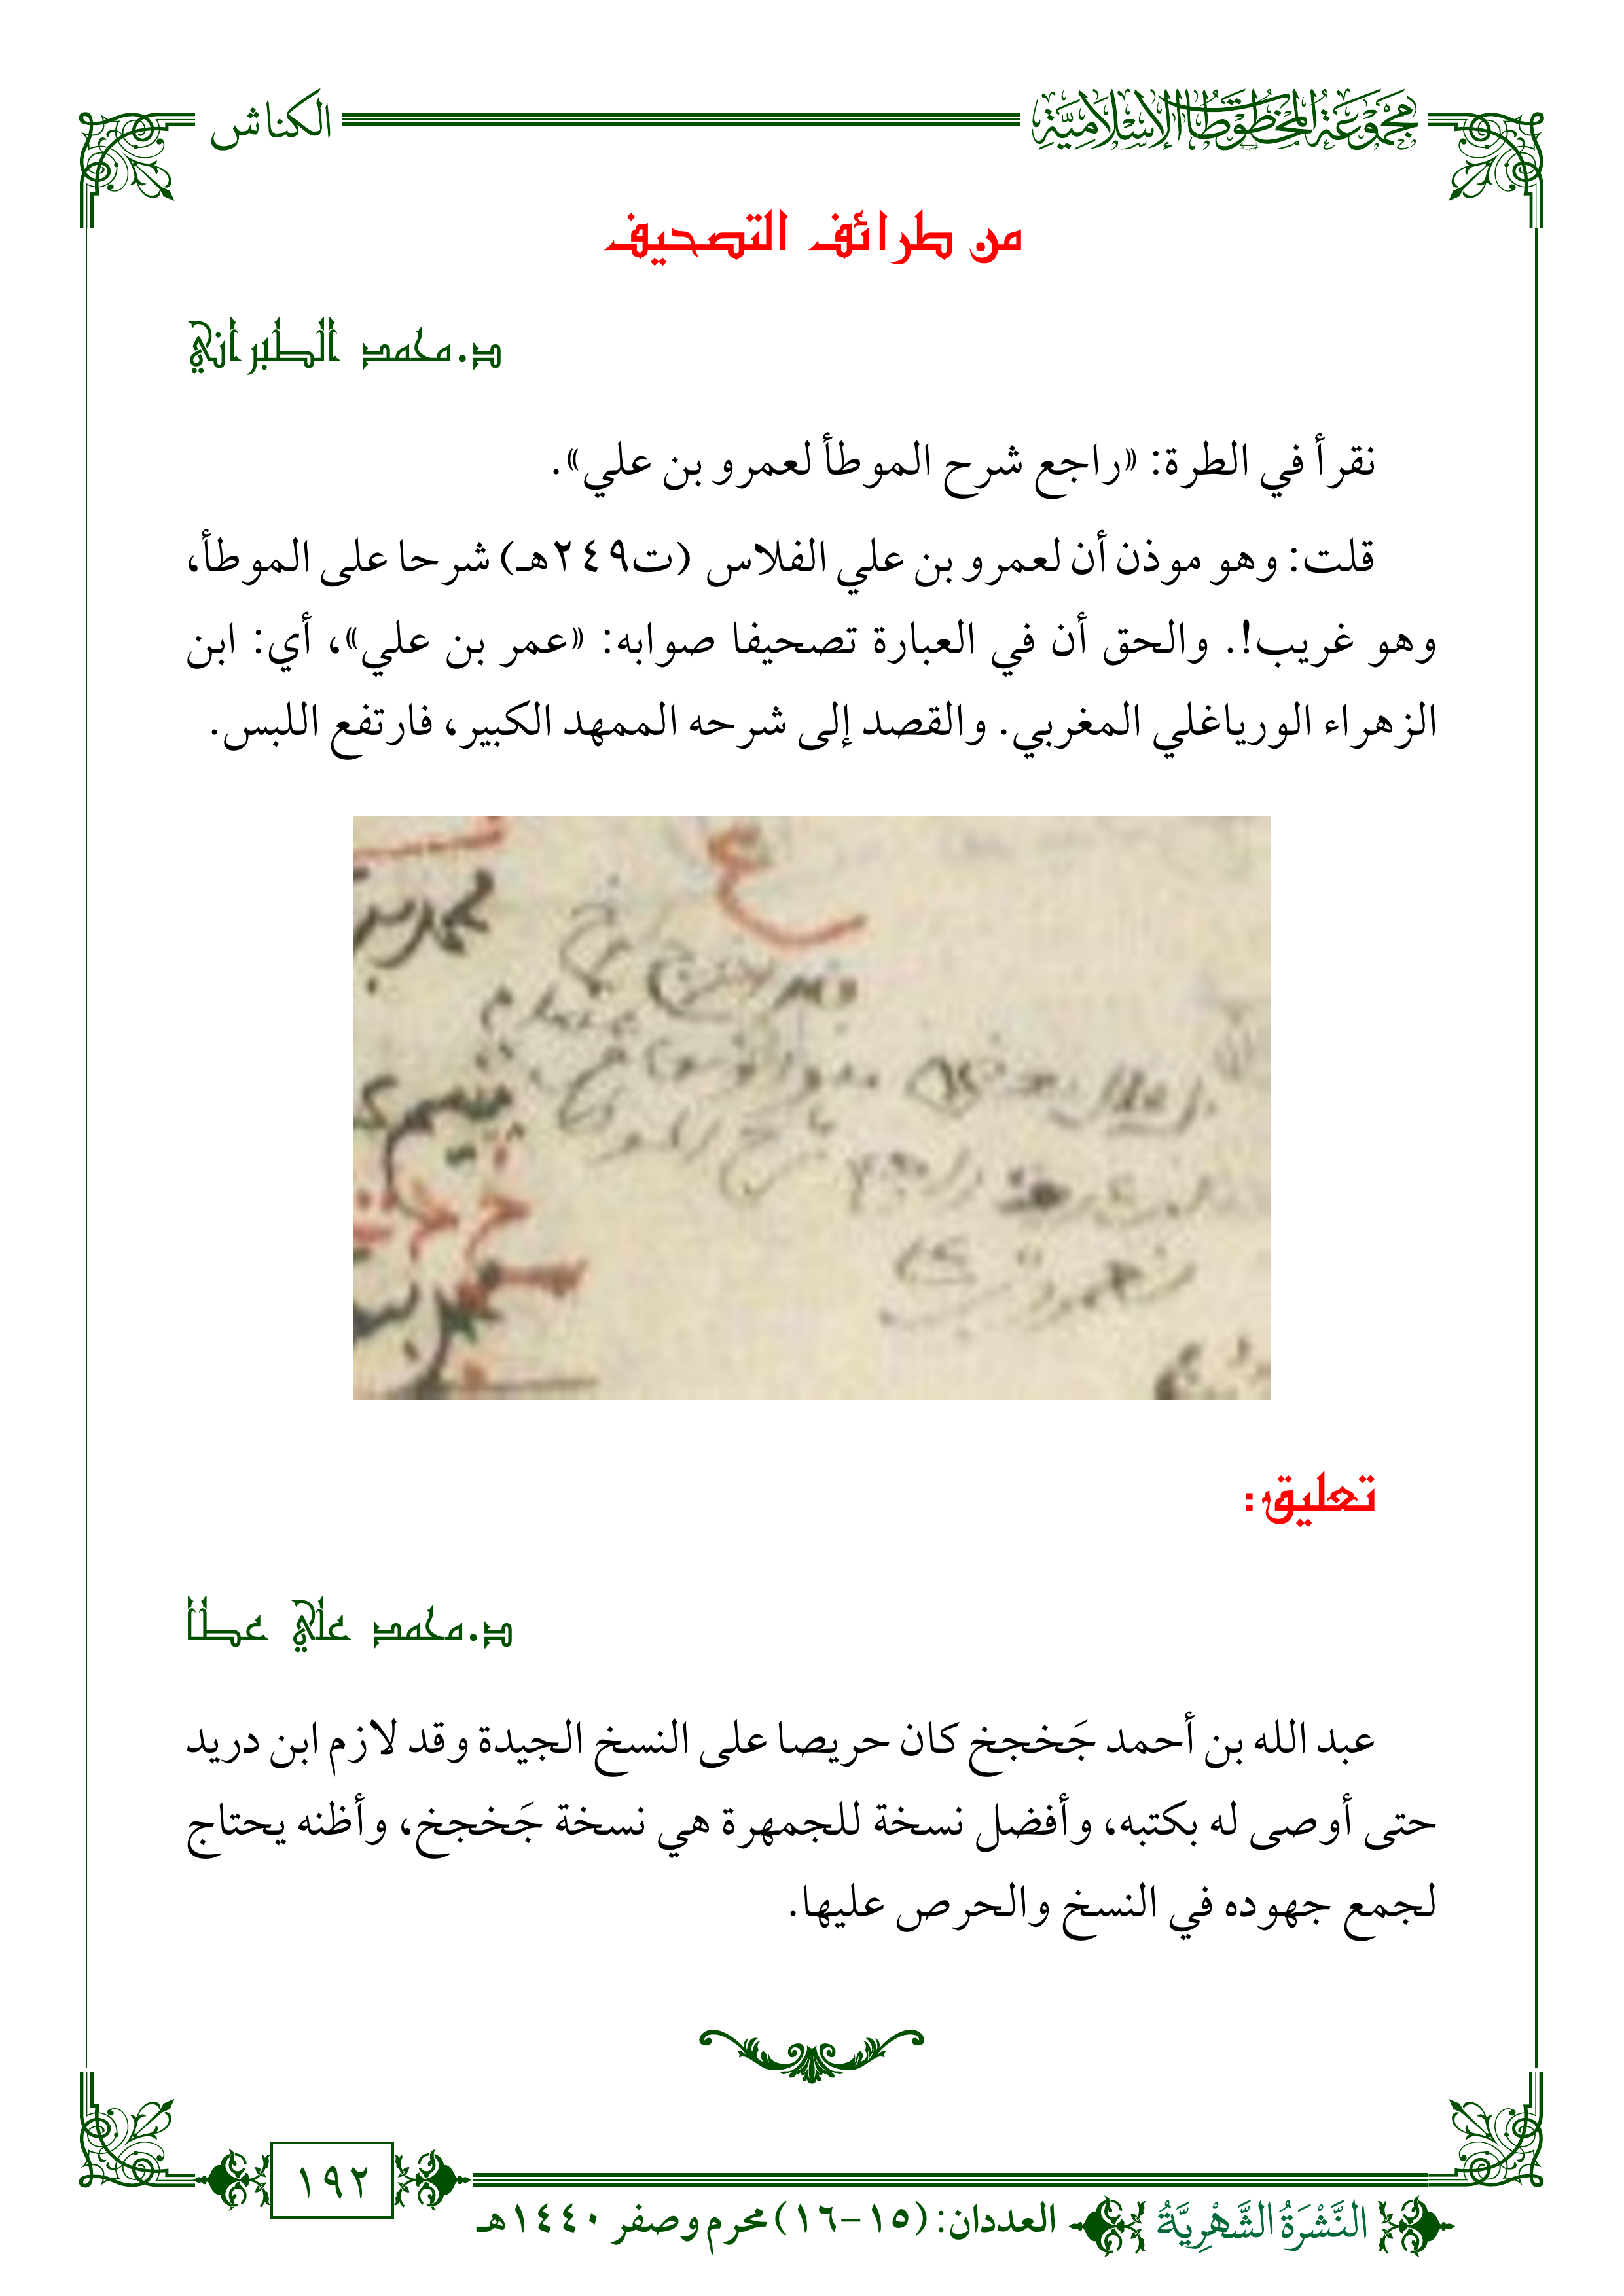 مَجْمُوعَةُ المَخْطُوطَاتِ الإِسْلَامِيَّةِ
الكناش
من طرائف التصحيف
د.محمد الطبراني
نقرأ في الطرة: «راجع شرح الموطأ لعمرو بن علي».
قلت: وهو موذن أن لعمرو بن علي الفلاس (ت٢٤٩هـ) شرحا على الموطأ،
وهو غريب!. والحق أن في العبارة تصحيفا صوابه: «عمر بن علي»، أي: ابن
الزهراء الورياغلي المغربي. والقصد إلى شرحه الممهد الكبير، فارتفع اللبس.
راجع شرح الموطأ
لعمرو بن علي
تعليق:
د.محمد علي عطا
عبد الله بن أحمد جَخجخ كان حريصا على النسخ الجيدة وقد لازم ابن دريد
حتى أوصى له بكتبه، وأفضل نسخة للجمهرة هي نسخة جَخجخ، وأظنه يحتاج
لجمع جهوده في النسخ والحرص عليها.
١٩٢
النَّشْرَةُ الشَّهْرِيَّةُ
العددان: (١٥-١٦) محرم وصفر ١٤٤٠هـ